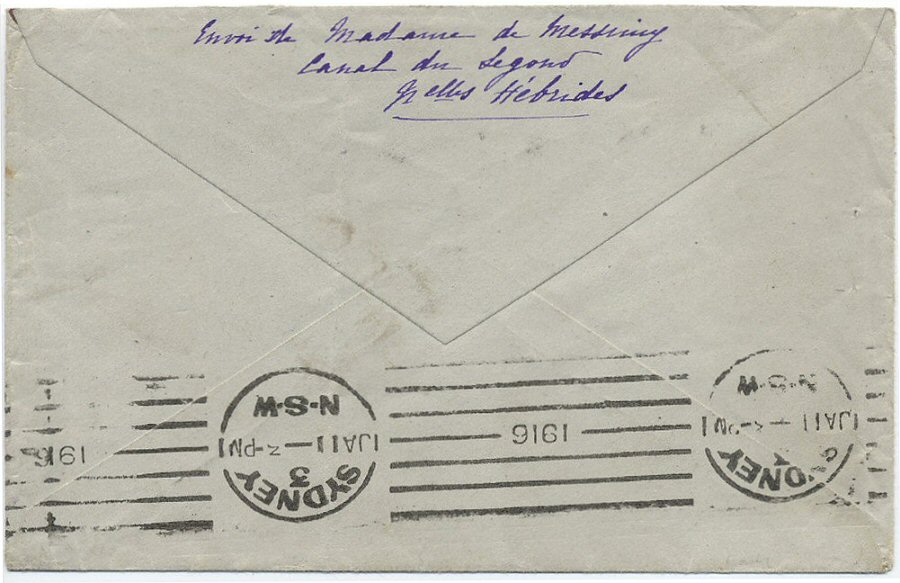 Envoi de Madame de Messimy
Canal du Segond
Nelles Hébrides
1916
SYDNEY
3
JA 11 — 3-PM
N·S·W
1916
SYDNEY
JA 11 — -PM
N·S·W